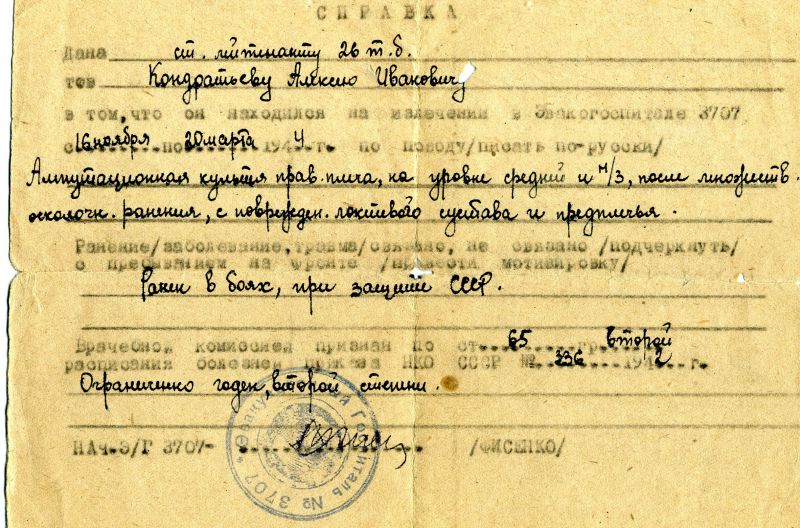 СПРАВКА
Дана ст. лейтенанту 26 т.б.
тов Кондратьеву Алексею Ивановичу
в том, что он находился на излечении в Эвакогоспитале 3707
с 16 ноября по 20 марта 1944 г. по поводу /писать по-русски/
Ампутационная культя прав. плеча, на уровне средней и н/3, после множеств.
осколочн. ранения, с поврежден. локтевого сустава и предплечья.
Ранение/заболевание, травма/связано, не связано /подчеркнуть/
с пребыванием на фронте /привести мотивировку/
Ранен в боях, при защите СССР.
Врачебной комиссией признан по ст. 65 гр. второй
расписания болезней приказа НКО СССР № 336 1942 г.
Ограниченно годен, второй степени.
НАЧ.Э/Г 3707- /ФИСЕНКО/
Госпиталь № 3707